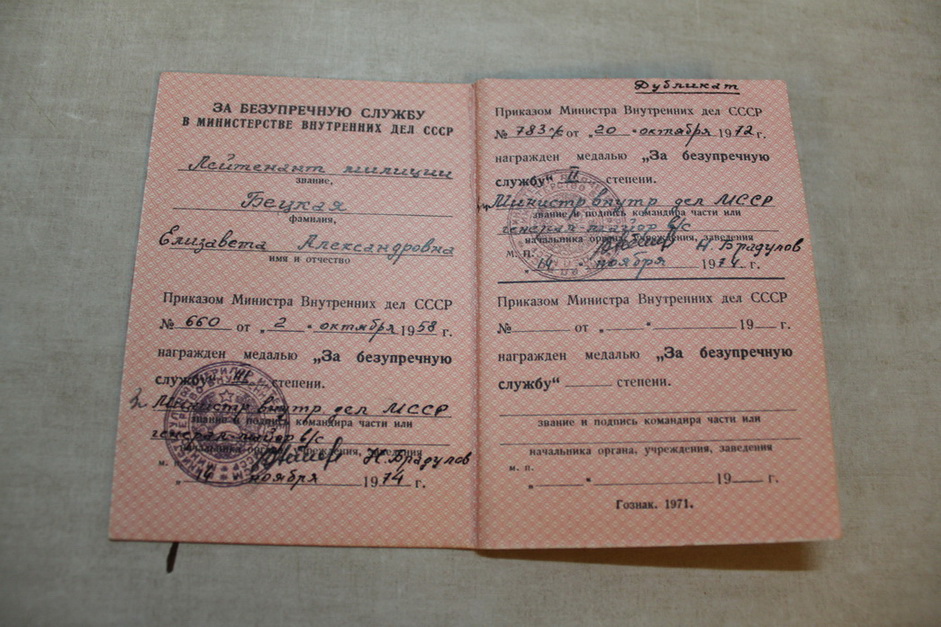 ЗА БЕЗУПРЕЧНУЮ СЛУЖБУ
В МИНИСТЕРСТВЕ ВНУТРЕННИХ ДЕЛ СССР
Лейтенант милиции
звание,
Бецкая
фамилия,
Елизавета Александровна
имя и отчество
Приказом Министра Внутренних дел СССР
№ 660 от „2“ октября 1958 г.
награжден медалью „За безупречную
службу“ III степени.
Министр внутр дел МССР
звание и подпись командира части или
генерал-майор в/с
начальника органа, учреждения, заведения
Н. Брадулов
м. п. „14“ ноября 1974 г.
Дубликат
Приказом Министра Внутренних дел СССР
№ 783 от „20“ октября 1972 г.
награжден медалью „За безупречную
службу“ II степени.
Министр внутр дел МССР
звание и подпись командира части или
генерал-майор в/с
начальника органа, учреждения, заведения
Н. Брадулов
м. п. „14“ ноября 1974 г.
Приказом Министра Внутренних дел СССР
№ от „ “ 19 г.
награжден медалью „За безупречную
службу“ степени.
звание и подпись командира части или
начальника органа, учреждения, заведения
м. п.
„ “ 19 г.
Гознак. 1971.